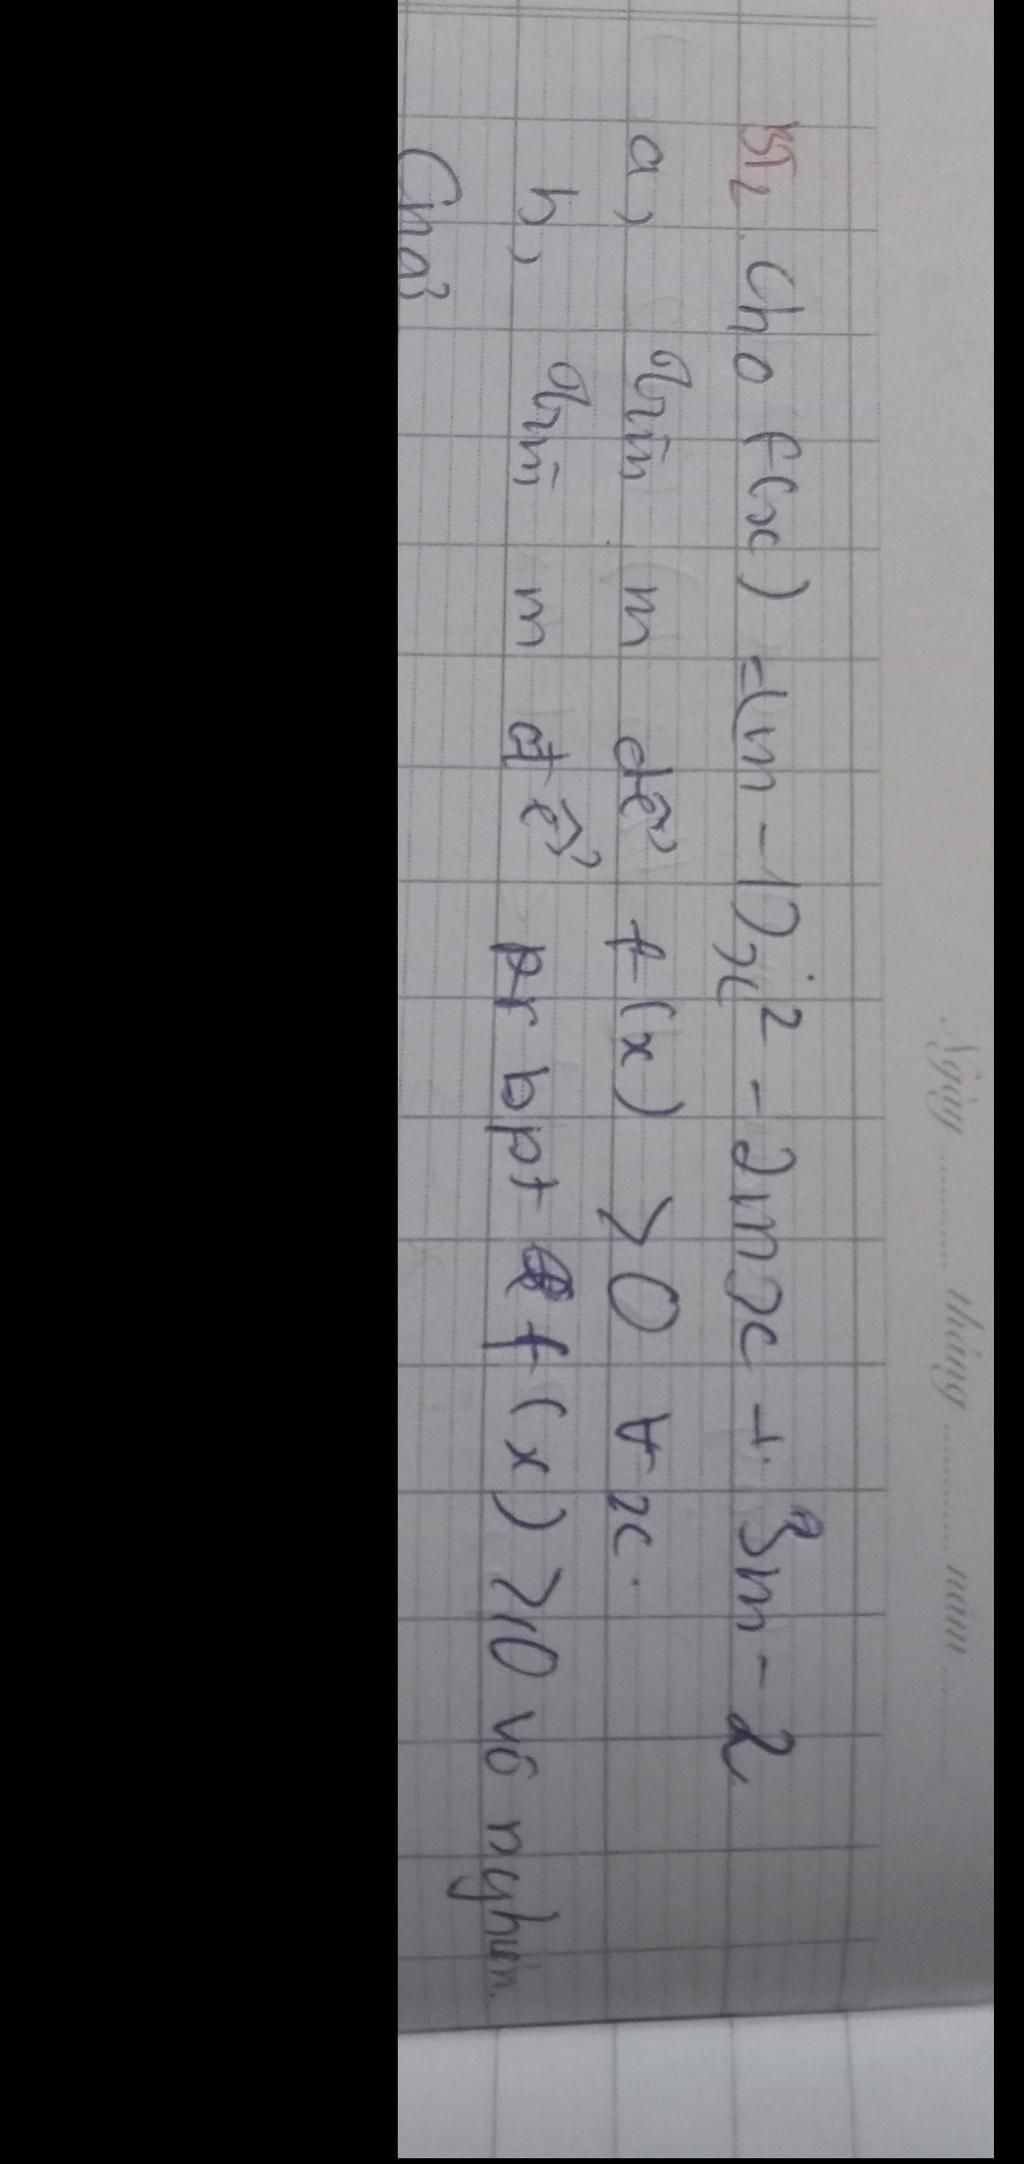 Ngày ............ tháng ............ năm ............
BT2. Cho f(x) = (m - 1)x² - 2mx + 3m - 2
a, Tìm m để f(x) > 0 ∀x.
b, Tìm m để bpt f(x) ⩾ 0 vô nghiệm.
Giải